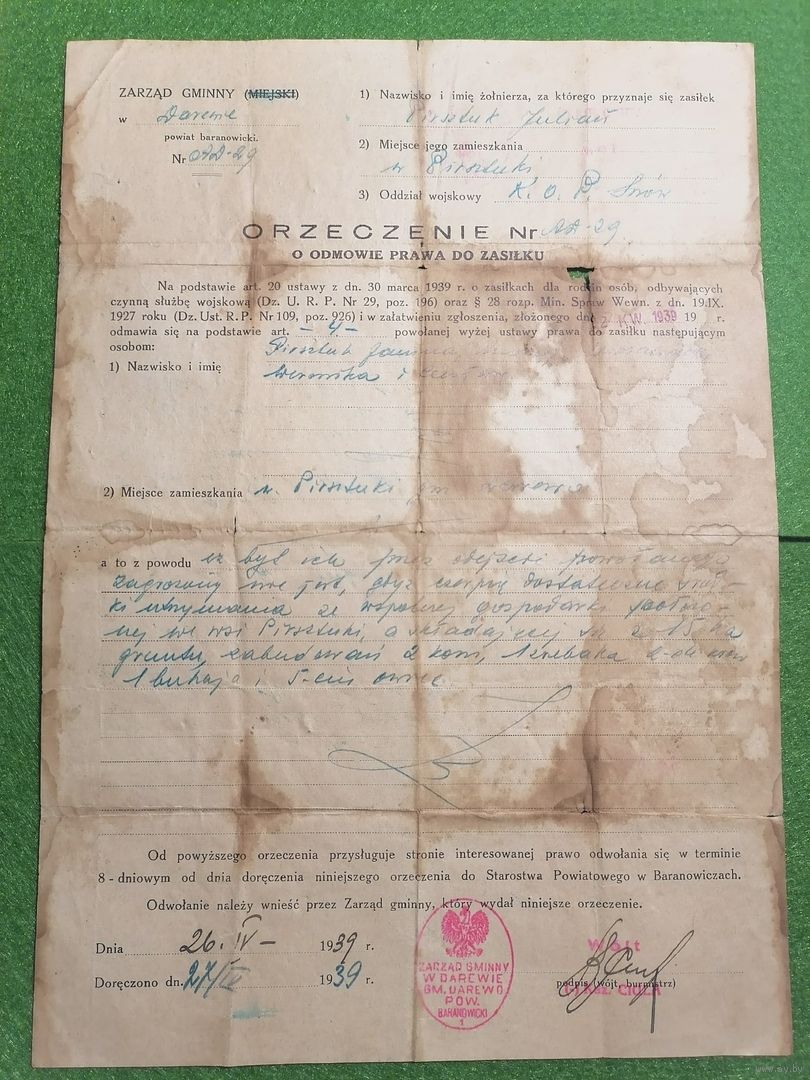 ZARZĄD GMINNY (MIEJSKI)
w Darewie
powiat baranowicki.
Nr
1) Nazwisko i imię żołnierza, za którego przyznaje się zasiłek
Pirsztuk Julian
2) Miejsce jego zamieszkania
w Pirsztuki
3) Oddział wojskowy K. O. P.
ORZECZENIE Nr
O ODMOWIE PRAWA DO ZASIŁKU
Na podstawie art. 20 ustawy z dn. 30 marca 1939 r. o zasiłkach dla rodzin osób, odbywających
czynną służbę wojskową (Dz. U. R. P. Nr 29, poz. 196) oraz § 28 rozp. Min. Spraw Wewn. z dn. 19.IX.
1927 roku (Dz. Ust. R. P. Nr 109, poz. 926) i w załatwieniu zgłoszenia, złożonego dn. KW. 1939 19 r.
odmawia się na podstawie art. – 4 – powołanej wyżej ustawy prawa do zasiłku następującym
osobom: Pirsztuk
1) Nazwisko i imię Weronika i
2) Miejsce zamieszkania w. Pirsztuki
a to z powodu że byt ich przez odejście powołanego
zagrożony nie jest, gdyż czerpią dostateczne środ-
ki utrzymania ze wspólnej gospodarki położo-
nej we wsi Pirsztuki, a składającej się z 15 ha
gruntu, zabudowań 2 koni, 1 źrebaka 2-ch krów
1 buhaja i 5-ciu owiec.
Od powyższego orzeczenia przysługuje stronie interesowanej prawo odwołania się w terminie
8 - dniowym od dnia doręczenia niniejszego orzeczenia do Starostwa Powiatowego w Baranowiczach.
Odwołanie należy wnieść przez Zarząd gminny, który wydał niniejsze orzeczenie.
Dnia 26. IV – 1939 r.
Doręczono dn. 27/IV 1939 r.
ZARZĄD GMINNY
W DAREWIE
GM. DAREWO
POW.
BARANOWICKI
1
Wójt
podpis (wójt, burmistrz)
www.ay.by